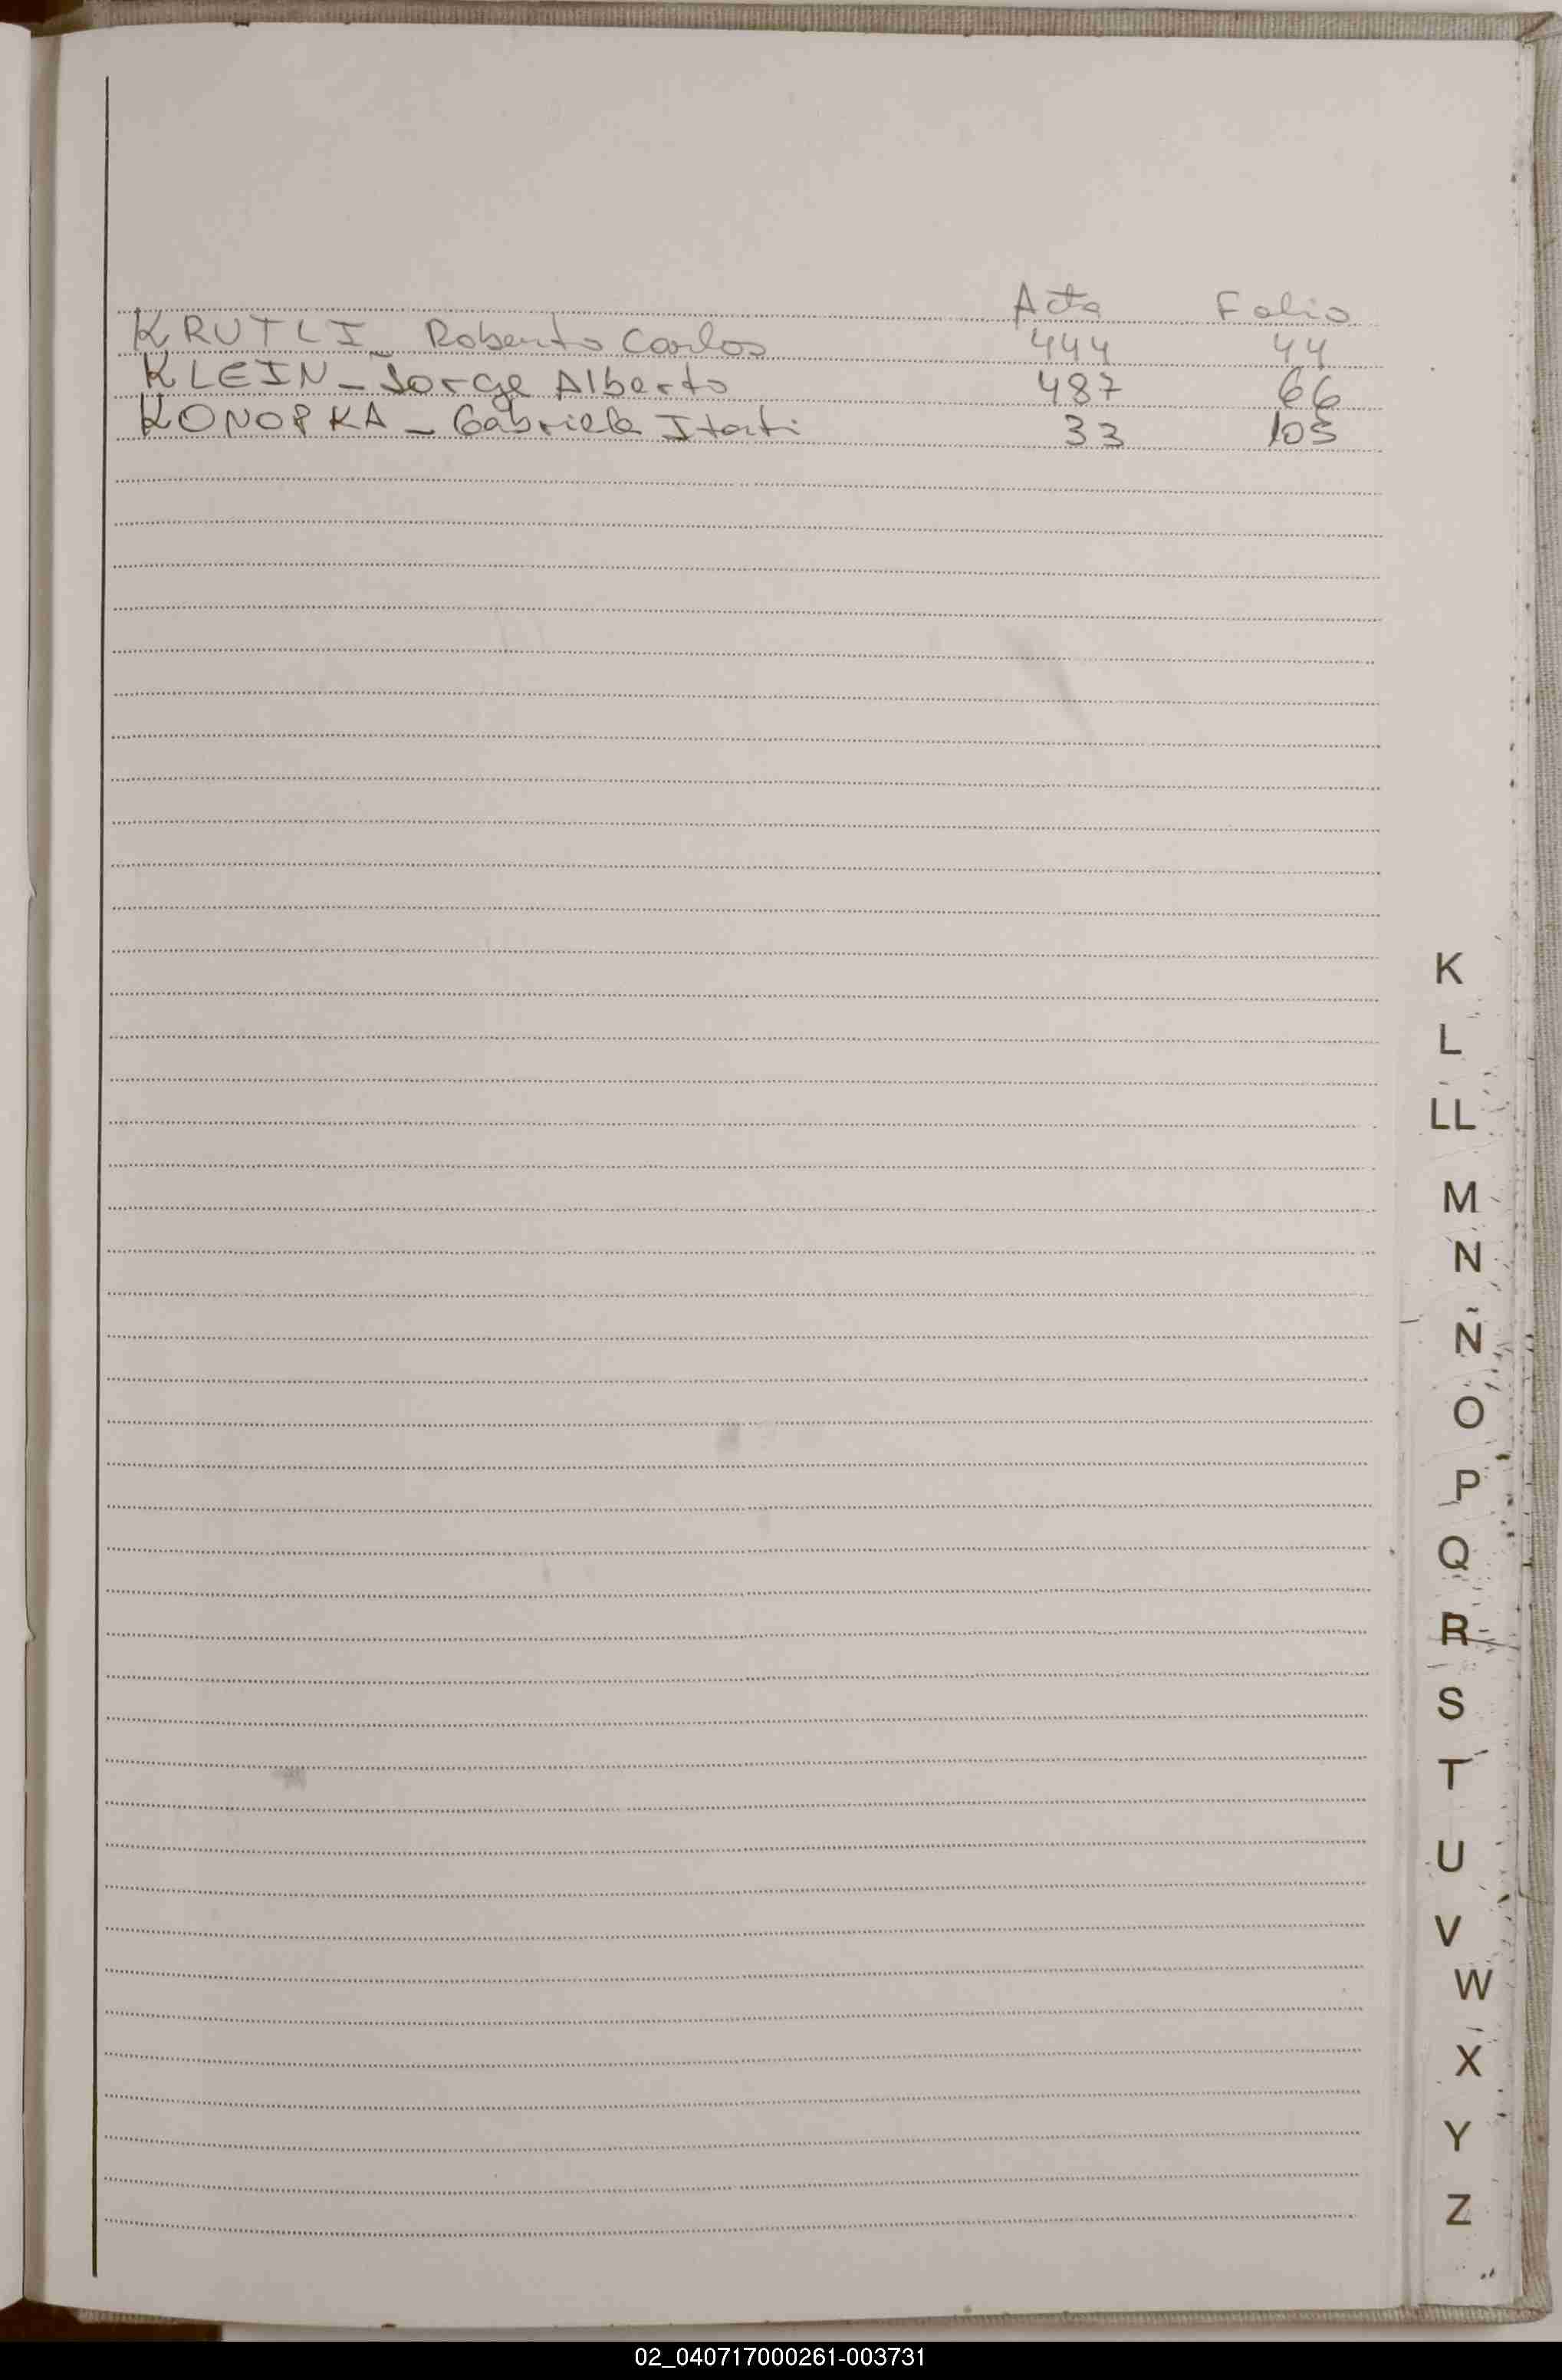 Acta Folio
KRUTLI - Roberto Carlos 444 44
KLEIN - Jorge Alberto 487 66
KONOPKA - Gabriela Itati 33 105
K
L
LL
M
N
Ñ
O
P
Q
R
S
T
U
V
W
X
Y
Z
02_040717000261-003731